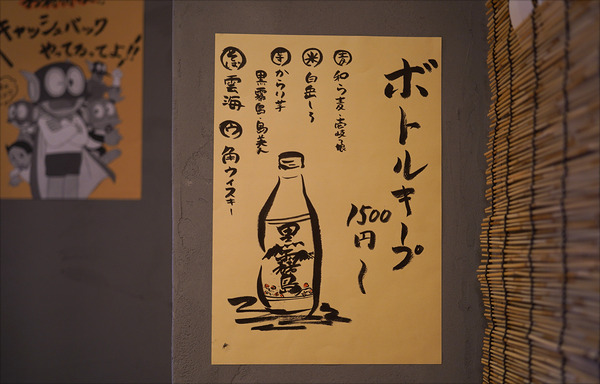 キャッシュバック
やってるってよ!!
ボトルキープ
1500円〜
麦 和ら麦・壱岐っ娘
米 白岳しろ
芋 からり芋
黒霧島・島美人
そば 雲海
ウ 角ウィスキー
黒霧島